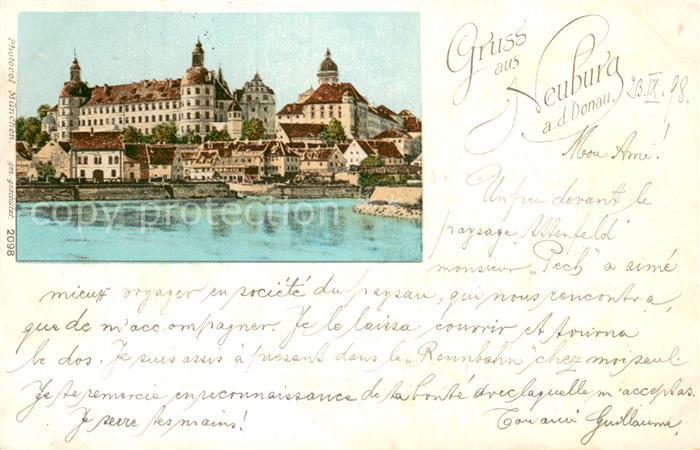 Gruss
aus
Neuburg
a. d. Donau.
23.IX. 98.
Photocol München ges. geschützt. 2098
copy protection
Mon Ami!
Un peu devant le
paysage Attenfeld
monsieur „Pech" a aimé
mieux voyager en société du paysan, qui nous rencontra,
que de m'accompagner. Je le laissa courrir et tourna
le dos. Je suis assis à présent dans le „Rennbahn" chez moi seul.
Je te remercie en reconnaissance de ta bonté avec laquelle m'acceptas.
Je serre tes mains! Ton ami Guillaume.